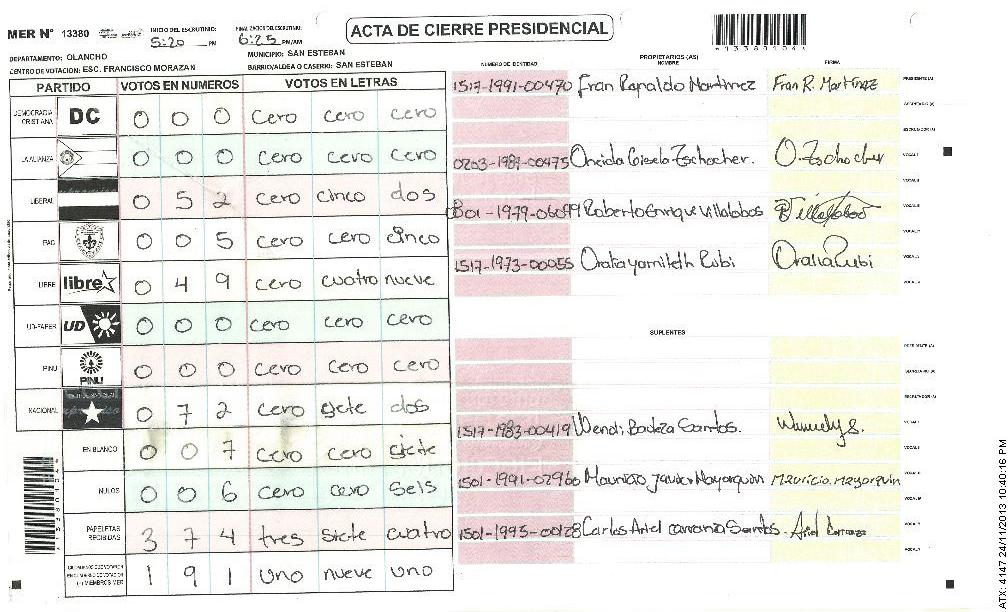 MER N° 13380 INICIO DEL ESCRUTINIO: 5:20 PM FINALIZACION DEL ESCRUTINIO: 6:25 PM/AM
ACTA DE CIERRE PRESIDENCIAL
DEPARTAMENTO: OLANCHO MUNICIPIO: SAN ESTEBAN
CENTRO DE VOTACION: ESC. FRANCISCO MORAZAN BARRIO/ALDEA O CASERIO: SAN ESTEBAN
PARTIDO VOTOS EN NUMEROS VOTOS EN LETRAS
DEMOCRACIA CRISTIANA DC 0 0 0 cero cero cero
LA ALIANZA 0 0 0 cero cero cero
LIBERAL 0 5 2 cero cinco dos
PAC 0 0 5 cero cero cinco
LIBRE libre 0 4 9 cero cuatro nueve
UD-FAPER UD 0 0 0 cero cero cero
PINU PINU 0 0 0 cero cero cero
NACIONAL 0 7 2 cero siete dos
EN BLANCO 0 0 7 cero cero siete
NULOS 0 0 6 cero cero seis
PAPELETAS RECIBIDAS 3 7 4 tres siete cuatro
1 9 1 uno nueve uno
NUMERO DE IDENTIDAD PROPIETARIOS (AS) NOMBRE FIRMA
1517-1991-00470 Fran Ranaldo Martinez Fran R. Martinez PRESIDENTE (A)
SECRETARIO (A)
ESCRUTADOR (A)
0203-1987-00475 Oneida Gisela Zschocher. O. Zschocher VOCAL I
VOCAL II
1801-1979-06099 Roberto Enrique Villalobos Villalobos VOCAL III
VOCAL IV
1517-1973-00055 Oralia yamileth Rubi Oralia Rubi VOCAL V
SUPLENTES
PRESIDENTE (A)
SECRETARIO (A)
ESCRUTADOR (A)
1517-1983-00419 Wendi Santos. VOCAL I
VOCAL II
1501-1991-02960 Mauricio Javier Mayorquin Mauricio. Mayorquin VOCAL III
VOCAL IV
1501-1995-00128 Carlos Ariel Santos. Ariel VOCAL V
ATX: 4147 24/11/2013 10:40:16 PM